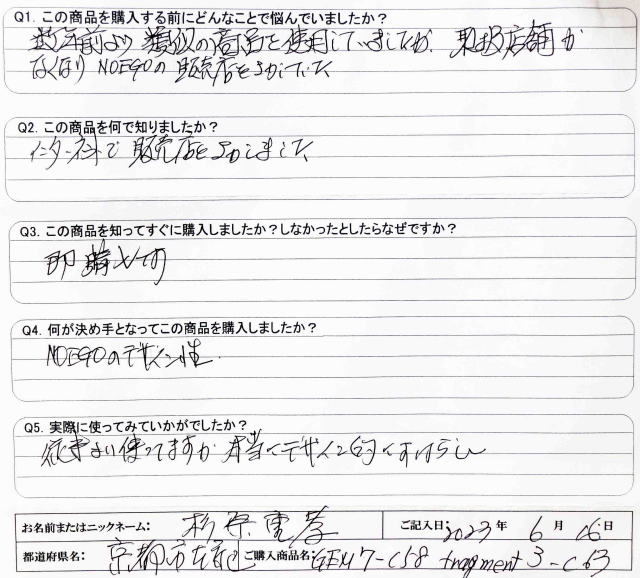 Q1. この商品を購入する前にどんなことで悩んでいましたか？
数年前より 類似の商品を使用していましたが、取扱店舗が
なくなり NOEGOの販売店をさがしていた
Q2. この商品を何で知りましたか？
インターネットで 販売店をさがしました
Q3. この商品を知ってすぐに購入しましたか？しなかったとしたらなぜですか？
即購入です
Q4. 何が決め手となってこの商品を購入しましたか？
NOEGOのデザイン性
Q5. 実際に使ってみていかがでしたか？
従来より使ってますが 本当にデザイン的にすばらしい
お名前またはニックネーム: 杉原 ご記入日: 2023年 6月 26日
都道府県名: 京都市左京区 ご購入商品名: GEM7-C58 fragment3-C63